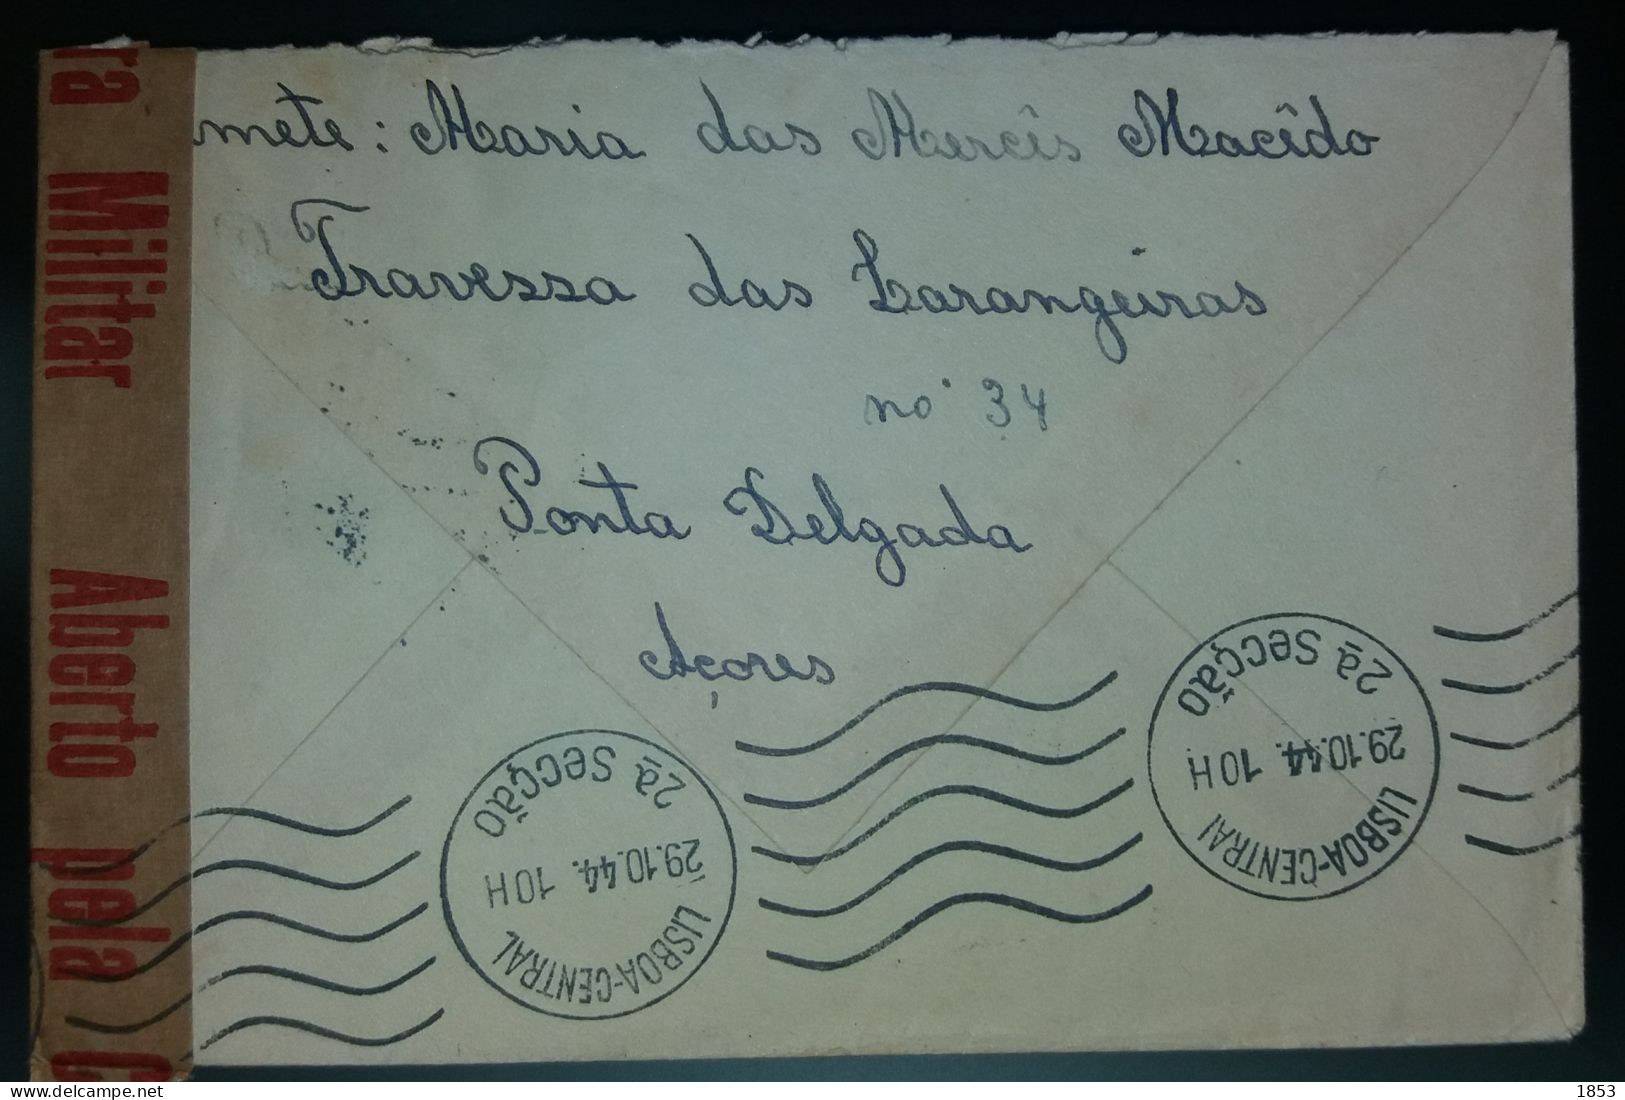 mete: Maria das Mercês Macêdo
Travessa das Larangeiras
no 34
Ponta Delgada
Açores
ra Militar Aberto pela C
LISBOA-CENTRAL
29.10.44. 10H
2ª SECÇÃO
LISBOA-CENTRAL
29.10.44. 10H
2ª SECÇÃO
1853